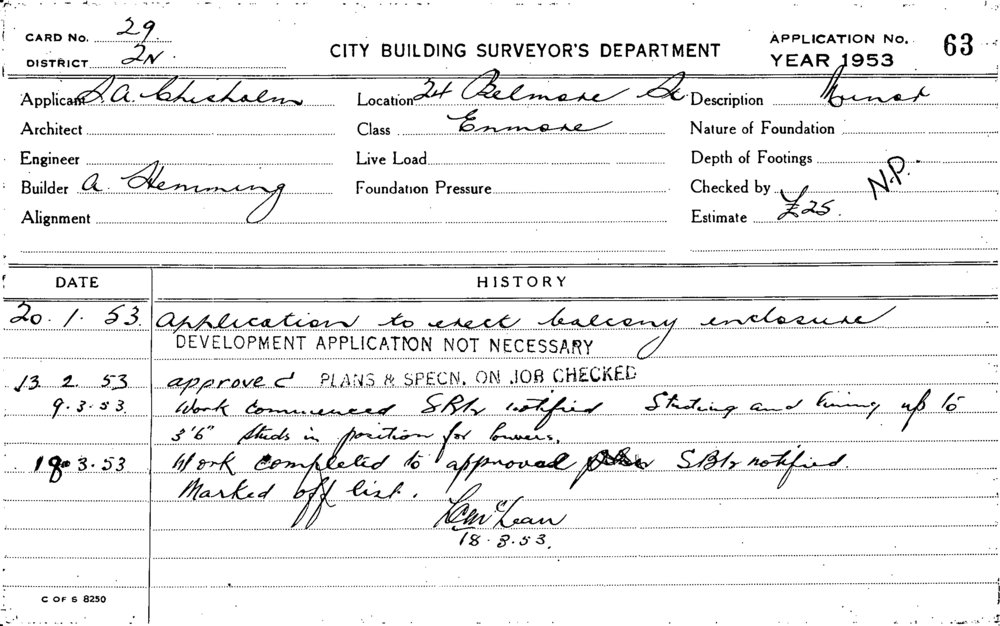 CARD No. 29.
DISTRICT 2N
CITY BUILDING SURVEYOR'S DEPARTMENT
APPLICATION No. 63
YEAR 1953
Applicant S.A. Chisholm
Location 24 Belmore St
Description Minor
Architect
Class Enmore
Nature of Foundation
Engineer
Live Load
Depth of Footings
Builder A Hemming
Foundation Pressure
Checked by N.P.
Alignment
Estimate £25.
DATE HISTORY
20.1.53. Application to erect balcony enclosure
DEVELOPMENT APPLICATION NOT NECESSARY
13 2 53 approved PLANS & SPECN. ON JOB CHECKED
9.3.53. Work commenced notified Studing and lining up to
3'6" studs in position for louvers.
18.3.53 Work completed to approved notified.
Marked off list.
McLean
18.3.53.
C OF S 8250